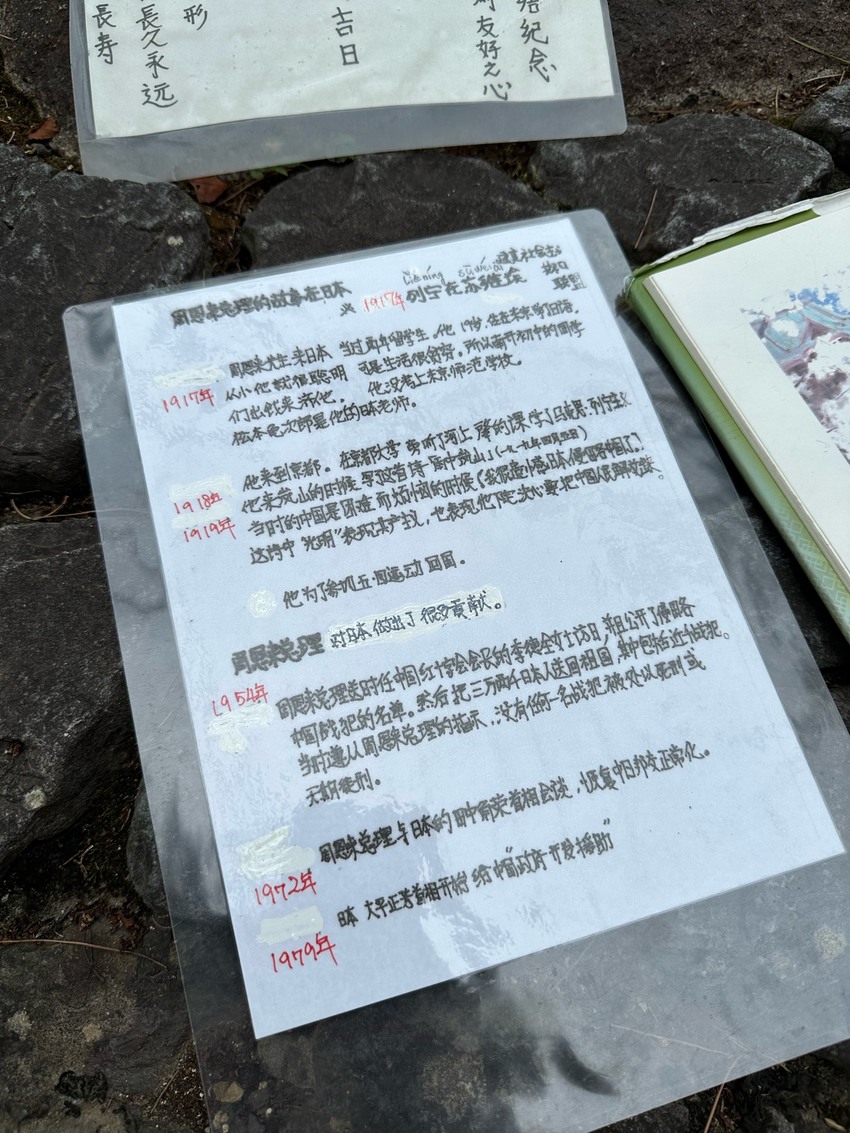 悟纪念
好友好之心
吉日
形
長久永远
長寿
周恩来总理的故事在日本
1917年列宁在苏维埃
liening suweiai
建直社会主
义
联盟
1917年
周恩来先生来日本 当过两年留学生。他19岁,住在东京学日语。
从小他就很聪明 可是生活很贫穷。所以南开初中的同学
们出钱来帮他。 他没考上东京师范学校。
松本亀次郎是他的日本老师。
1918年
1919年
他来到京都。在京都大学 旁听了河上肇的课学了马克思·列宁主义
他来岚山的时候 写这首诗“雨中岚山”(一九一九年四月五日)
当时的中国是困难而烦恼的时候
这诗中“光明”表现共产主义,也表现他下定决心要把中国人民解放。
他为了参加五·四运动回国。
周恩来总理 对日本做出了很多贡献。
1954年
周恩来总理送时任中国红十字会会长的李德全女士访日,并且公开了侵略
中国战犯的名单。然后把三万两千日本人送回祖国,其中包括近千战犯。
当时遵从周恩来总理的指示,没有任何一名战犯被处以死刑或
无期徒刑。
1972年
周恩来总理与日本的田中角荣首相会谈,恢复中日邦交正常化。
1979年
日本 大平正芳首相开始给中国政府“开发援助”